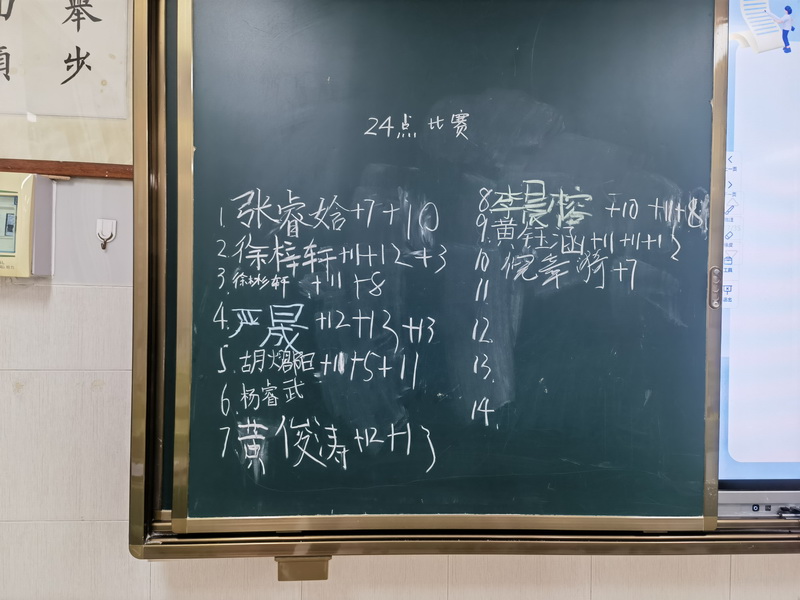 舉步
24点比赛
1. 张睿姶+7+10
2. 徐梓轩+11+12+3
3. 徐彬轩 +11+8
4. 严晟+12+13+13
5. 胡熠阳+11+5+11
6. 杨睿武
7 黄俊涛+12+13
8. 李晨榕 +10 +11+8
9. 黄钰涵+11+11+12
10 倪幸骑+7
11
12.
13.
14.